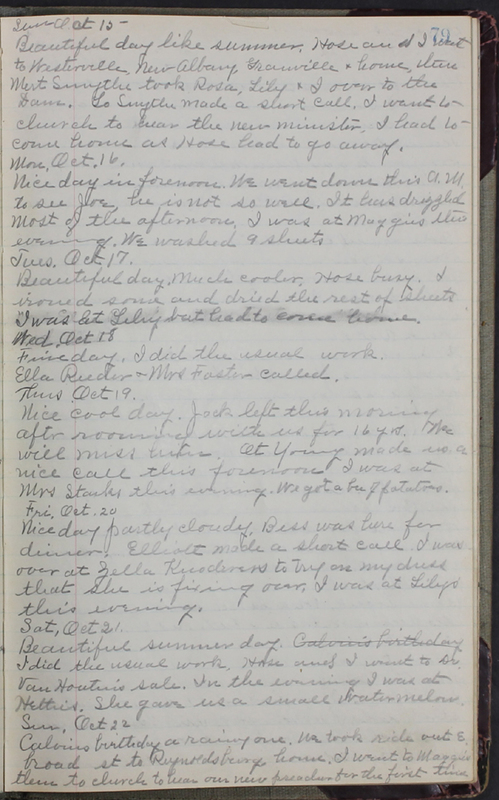 Sun Oct 15-
79
Beautiful day like summer. Hose and I went
to Westerville, New Albany Granville & home, then
Mert Smythe took Rosa, Lily & I over to the
Dam. Smythe made a short call. I went to
church to hear the new minister. I had to
come home as Hose had to go away.
Mon, Oct. 16.
Nice day in forenoon. We went down this A.M.
to see Joe, he is not so well. It has drizzled
most of the afternoon. I was at Maggies this
evening. We washed 9 sheets
Tues. Oct 17.
Beautiful day, Much cooler. Hose busy. I
ironed some and dried the rest of sheets
I was at Lily's but had to come home.
Wed. Oct 18
Fine day. I did the usual work.
Ella Reeder & Mrs Foster called.
Thurs Oct 19.
Nice cool day. Jack left this morning
aftr rooming with us for 16 yrs. We
will miss him. Young made us a
nice call this forenoon I was at
Mrs this evening. We got a bu of potatoes.
Fri, Oct. 20
Nice day partly cloudy. Bess was here for
dinner. Elliott made a short call. I was
over at Zella to try on my dress
that she is fixing over. I was at Lilys
this evening.
Sat, Oct 21.
Beautiful summer day. Calvins birthday
I did the usual work. Hose and I went to Dr.
Van Houtin's sale. In the evening I was at
Hettie's. She gave us a small watermelon.
Sun, Oct 22
Calvins birthday a rainy one. We took ride out E
broad st to Reynoldsburg home. I went to Maggies
then to church to hear our new preacher for the first time